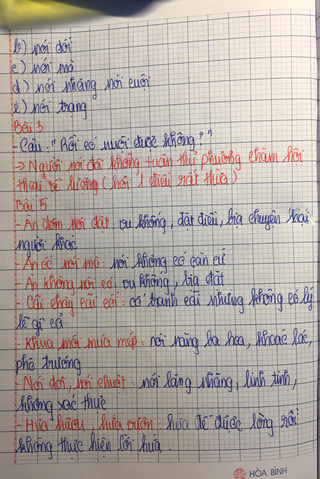 b) nói dối
c) nói mò
d) nói nhăng nói cuội
e) nói trạng
Bài 3
- Câu: "Rồi có nuôi được không?"
-> Người nói đã không tuân thủ phương châm hội
thoại về lượng (hỏi 1 điều rất thừa)
Bài 5
- Ăn đơm nói đặt: vu khống, đặt điều, bịa chuyện hại
người khác
- Ăn ốc nói mò: nói không có căn cứ
- Ăn không nói có: vu khống, bịa đặt
- Cãi chày cãi cối: cố tranh cãi nhưng không có lý
lẽ gì cả
- Khua môi múa mép: nói năng ba hoa, khoác lác,
phô trương
- Nói dơi, nói chuột: nói lăng nhăng, linh tinh,
không xác thực
- Hứa hươu, hứa vượn: hứa để được lòng rồi
không thực hiện lời hứa.
HÒA BÌNH